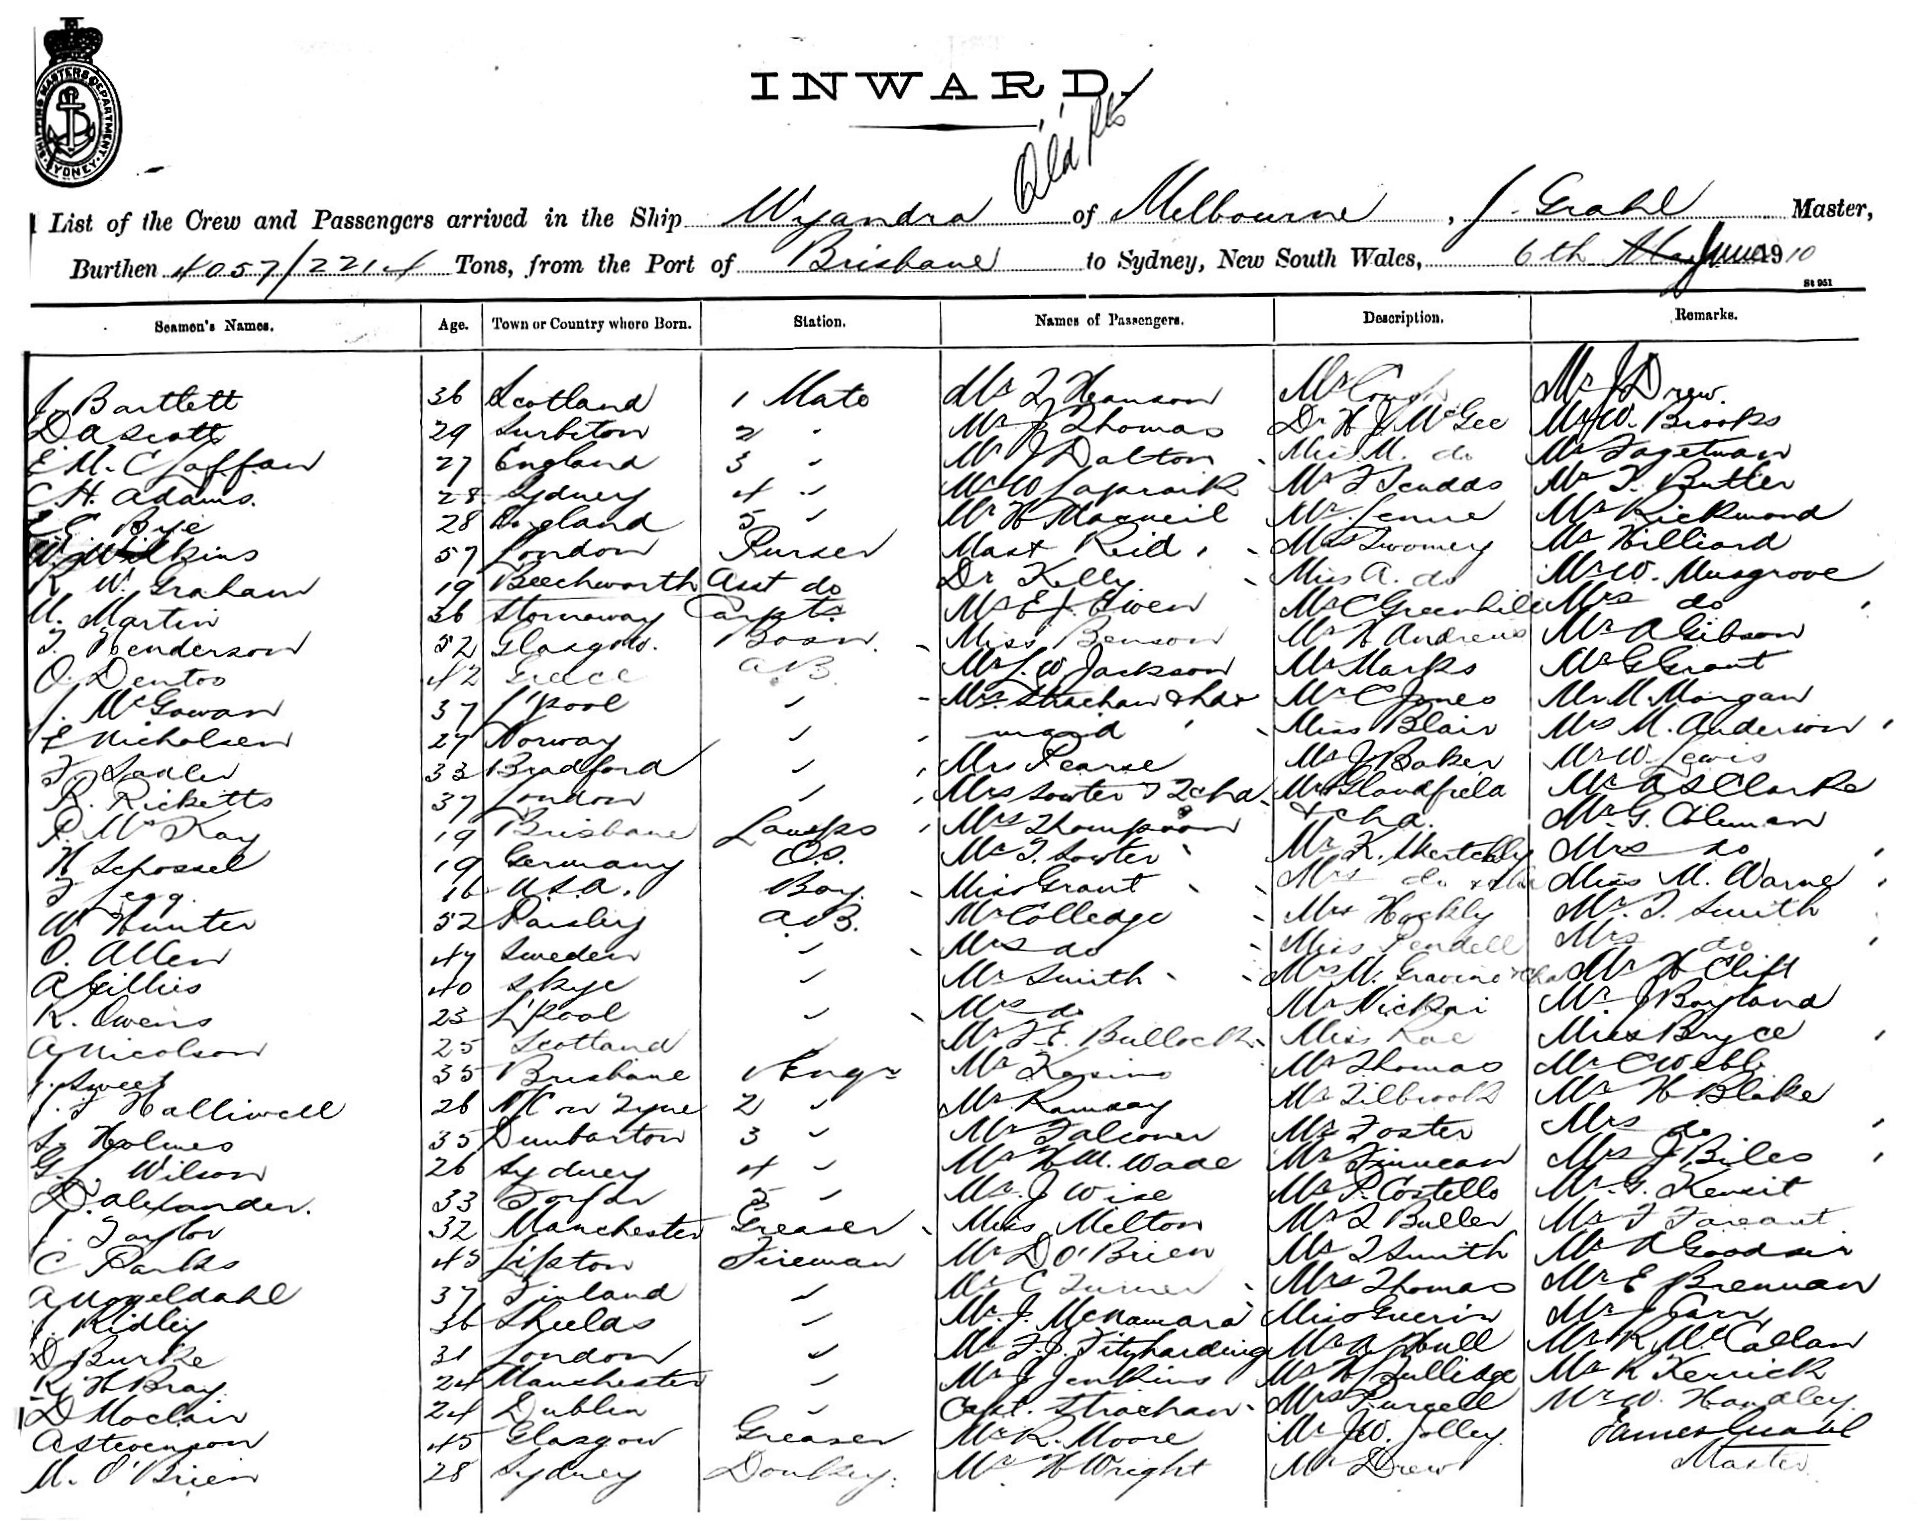 SHIPPING MASTERS DEPARTMENT. SYDNEY
INWARD.
Qld Pts
List of the Crew and Passengers arrived in the Ship Wyandra of Melbourne, J. Grahl Master,
Burthen 4057/2214 Tons, from the Port of Brisbane to Sydney, New South Wales, 6th May June 1910
St 951
Seamen's Names. Age. Town or Country where Born. Station. Names of Passengers. Description. Remarks.
J. Bartlett 36 Scotland 1 Mate Mr T Heanson Mr Mr J Drew.
D A Scott 29 Surbiton 2 " Mr J Thomas Dr H J McGee Mr W. Brooks
E. M. C Laffan 27 England 3 " Mr J Dalton Miss M. do Mr Fagetman
C H. Adams. 28 Sydney 4 " Mr W Lapraik Mr F Scudds Mr T. Butler
E C Bye 28 England 5 " Mr H Macneil Mr Lenne Mr Rickwood
W. Wilkins 57 London Purser Mast Reid Mrs Twomey Mr Hilliard
R W. Graham 19 Beechworth Asst do Dr Kelly Miss A. do Mr W. Musgrove
M. Martin 36 Stornaway Carptr Mr E J. Given Mr C Greenhill Mrs do
T. Henderson 52 Glasgow. Bosn. Miss Benson Mr H Andrews Mr A Gibson
O. Dentos 42 Greece A.B. Mr L. W Jackson Mr Marks Mr G Grant
J. McGowan 37 L'pool " Mrs Strachan & chd & Mr C Jones Mr M. Morgan
E Nicholsen 27 Norway " maid Miss Blair Mrs M. Anderson
F. Sadler 33 Bradford " Mrs Pearse Mr J Baker Mr W. Lewis
R. Ricketts 37 London " Mrs Sowter & 2 chd Mrs Glandfield Mr A S Clarke
P. McKay 19 Brisbane Lamps Mrs Thompson & chd. Mr G. Coleman
H Schossel 19 Germany O.S. Mr T. Sowter Mr K. Sketchly Mrs do
F Legg 16 U.S.A. Boy. Miss Grant Mrs do Miss M. Warne
W Hunter 52 Paisley A.B. Mr Colledge Mrs Hockly Mr. T. Smith
O. Allen 47 Sweden " Mrs do Miss Pendell Mrs do
A Gillies 40 Skye " Mr Smith Mrs M. Gravino & chd Mr H Clift
R. Owens 23 L'pool " Mrs do Mr Nicksi Mr J Boyland
A Nicolson 25 Scotland " Mr F. E. Bullock Miss Rae Miss Bryce
J. Sweet 35 Brisbane 1 Engr Mr Kosino Mr Thomas Mr C Webb
J. F Halliwell 26 N/C on Tyne 2 " Mr Ramsay Mr Tilbrook Mr H Blake
S. Holmes 35 Dumbarton 3 " Mr Falconer Mr Foster Mrs do
G. L. Wilson 26 Sydney 4 " Mr H M. Wade Mr Finnecan Mrs J Biles
D. Alexander. 33 Forfar 5 " Mr. J Wise Mr P. Costello Mr. G. Kensit
J. Taylor 32 Manchester Greaser Miss Melton Mr T Buller Mr F Fareant
C Parks 45 Lipton Fireman Mr D O'Brien Mr T Smith Mr A Goodsir
A Nongeldahl 37 Finland " Mr C Turner Mrs Thomas Mr E Brennan
J. Ridley 36 Shields " Mr. J. McNamara Miss Guerin Mr J Carr
D Burke 31 London " Mr F. J. Fitzharding Mr A Hull Mr R McCallan
R. H Bray. 24 Manchester " Mr J Jenkins Mr H Gullidge Mr R Kerrick
D Moclair 24 Dublin " Capt. Strachan Mrs Purcell Mr W. Handley.
A Stevenson 45 Glasgow Greaser Mr R. Moore Mr J W. Jolley. James Grahl
M. O'Brien 28 Sydney Donkey. Mr H Wright Mr Drew Master